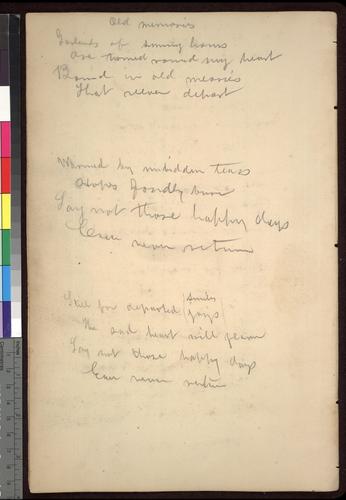 Old memories
Garlands of sunny hours
are twined round my heart
Bound in old memories
That never depart
Warmed by unbidden tears
hopes fondly burn
Say not those happy days
Can never return
Still for departed joys smiles
The sad heart will yearn
Say not those happy days
Can never return